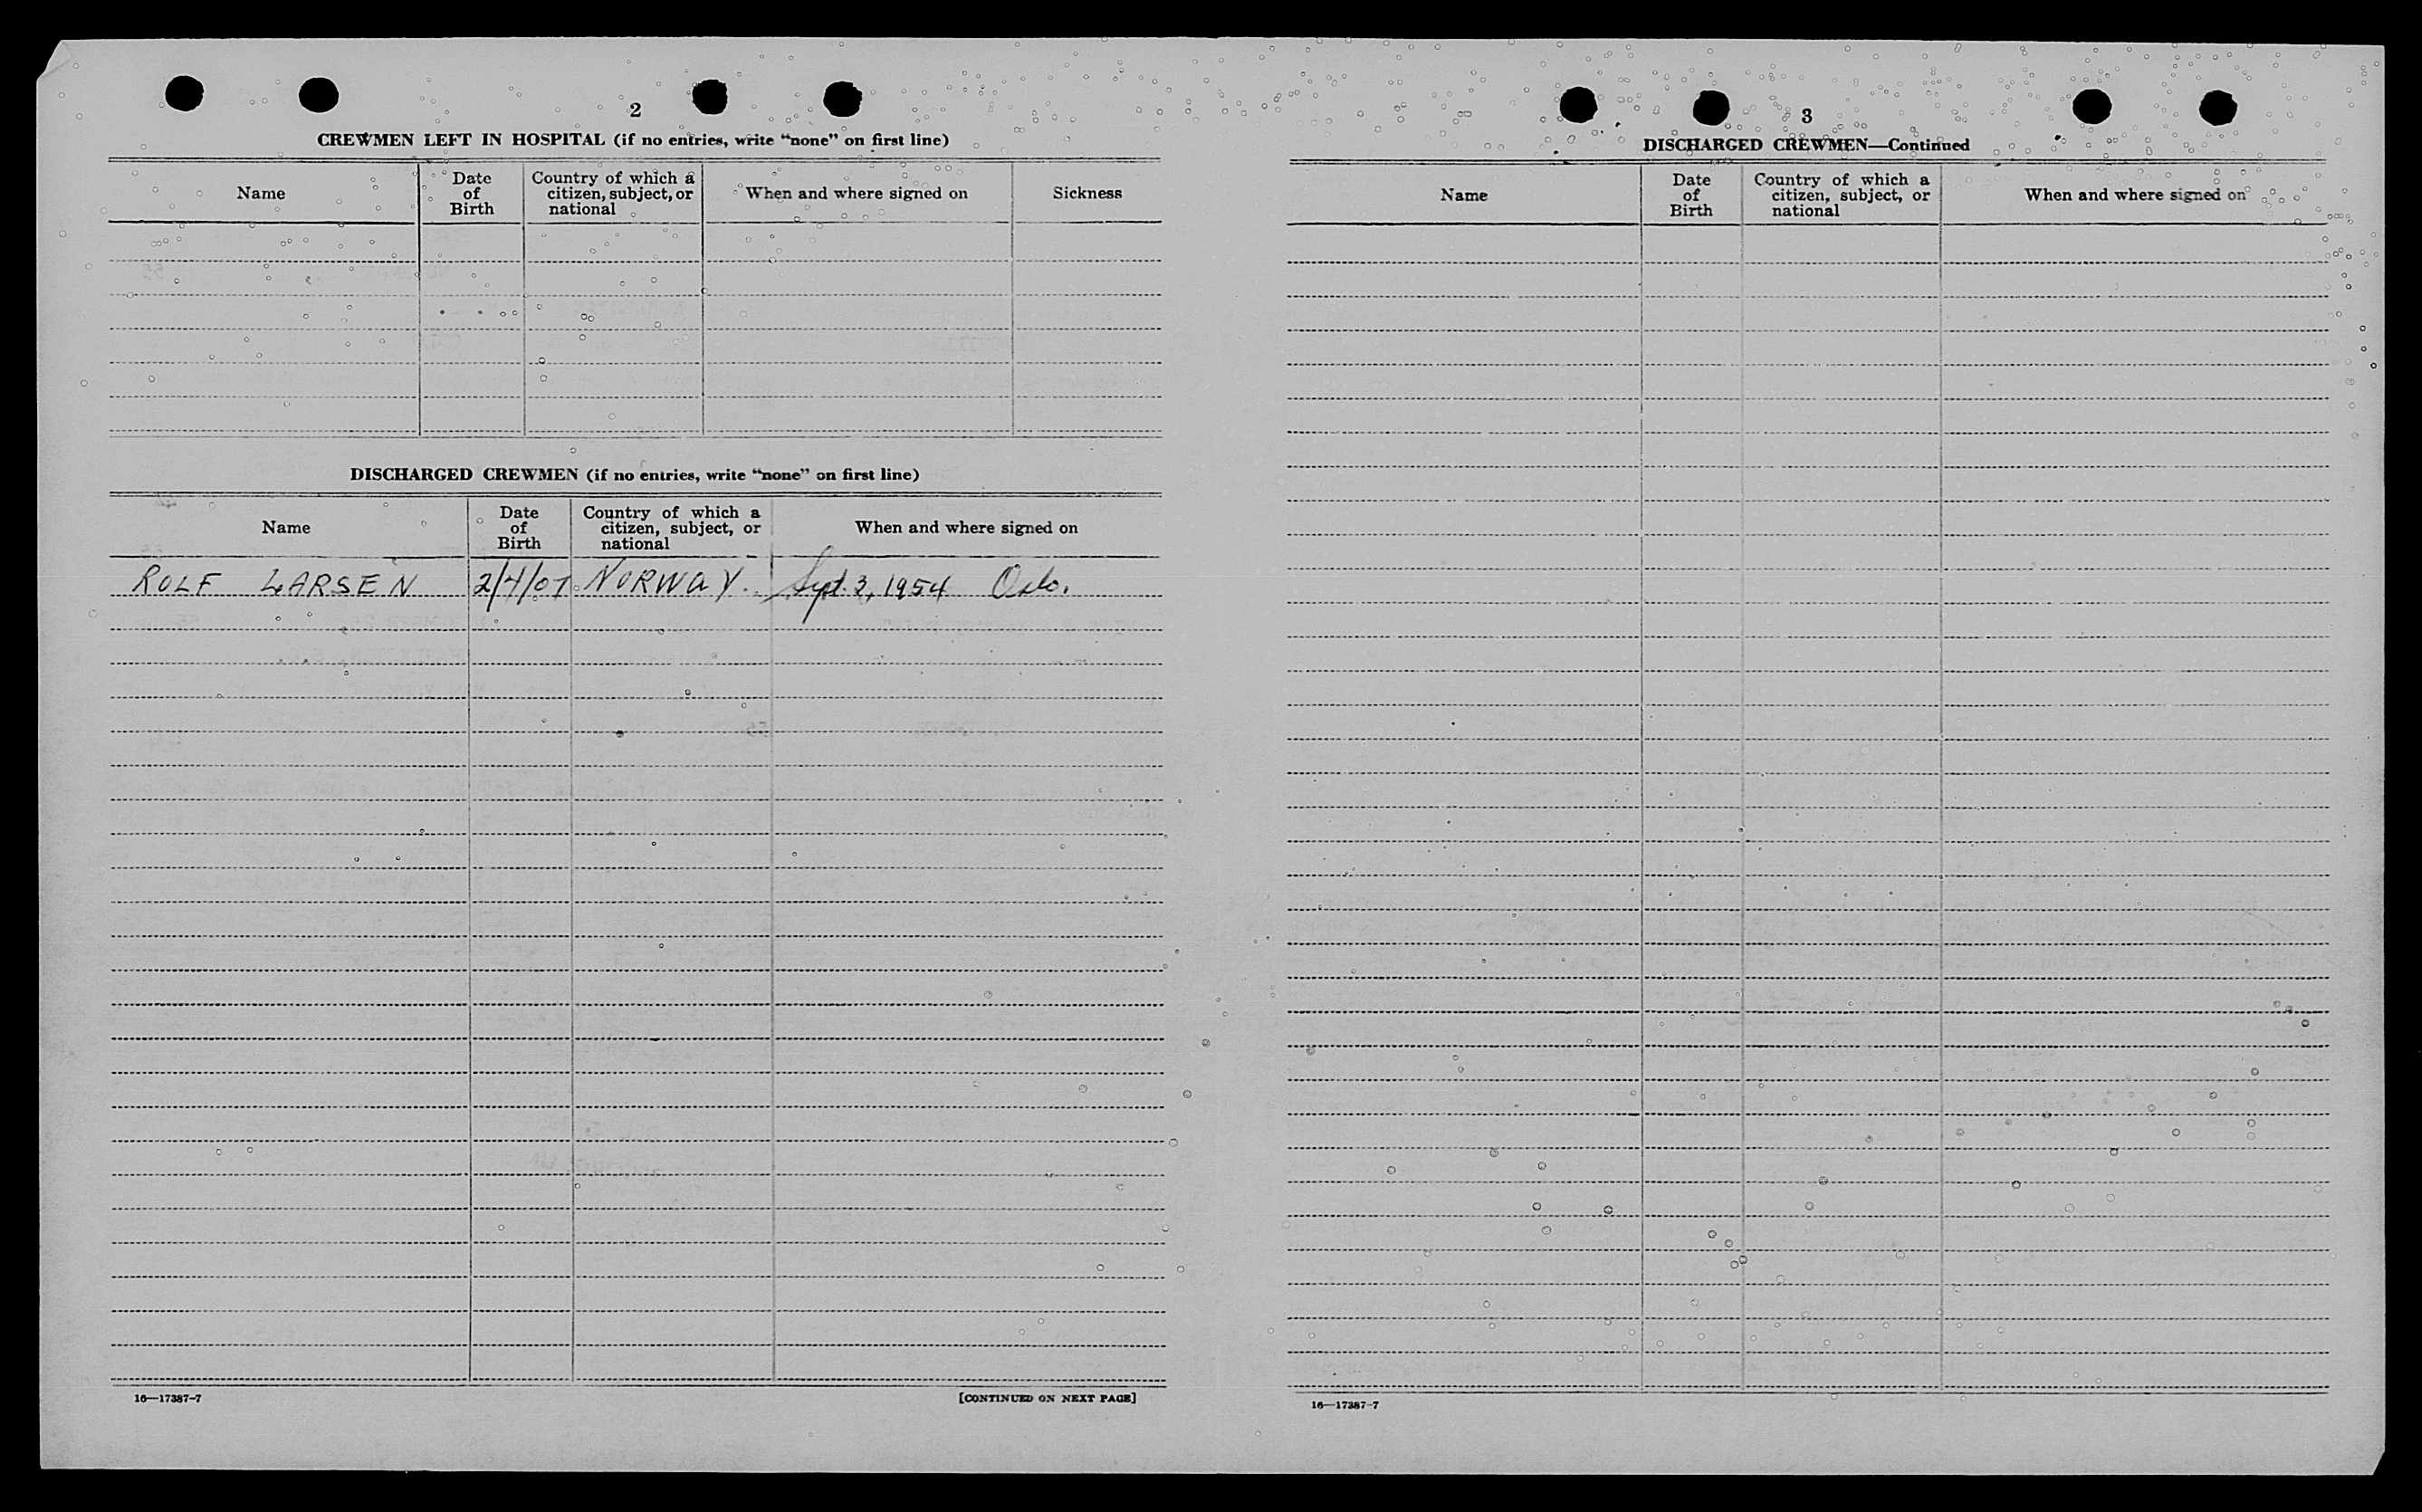 2
CREWMEN LEFT IN HOSPITAL (if no entries, write “none” on first line)
Name
Date of Birth
Country of which a citizen, subject, or national
When and where signed on
Sickness
DISCHARGED CREWMEN (if no entries, write “none” on first line)
Name
Date of Birth
Country of which a citizen, subject, or national
When and where signed on
ROLF LARSEN 2/4/07 NORWAY. Sept. 3, 1954 Oslo.
16—17387-7 [CONTINUED ON NEXT PAGE]
3
DISCHARGED CREWMEN—Continued
Name
Date of Birth
Country of which a citizen, subject, or national
When and where signed on
16—17387-7